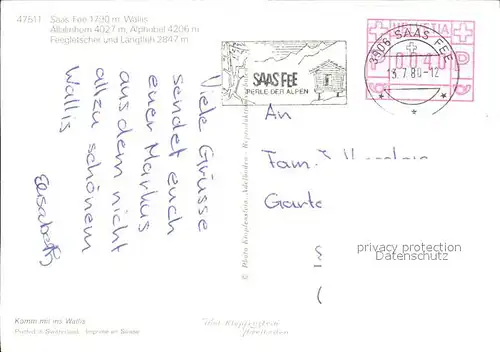 47511 Saas Fee 1790 m Wallis
Allalinhorn 4027 m, Alphubel 4206 m
Feegletscher und Längfluh 2847 m
SAAS FEE
PERLE DER ALPEN
HELVETIA
P 0040 P
3906 SAAS FEE
13.7.80-12
Viele Grüsse
sendet euch
euer Markus
aus dem nicht
allzu schönem
Wallis
Elisabeth
An
Fam.
Garte
privacy protection
Datenschutz
© Photo Klopfenstein, Adelboden
Komm mit ins Wallis
Printed in Switzerland Imprimé en Suisse
Klopfenstein
Adelboden